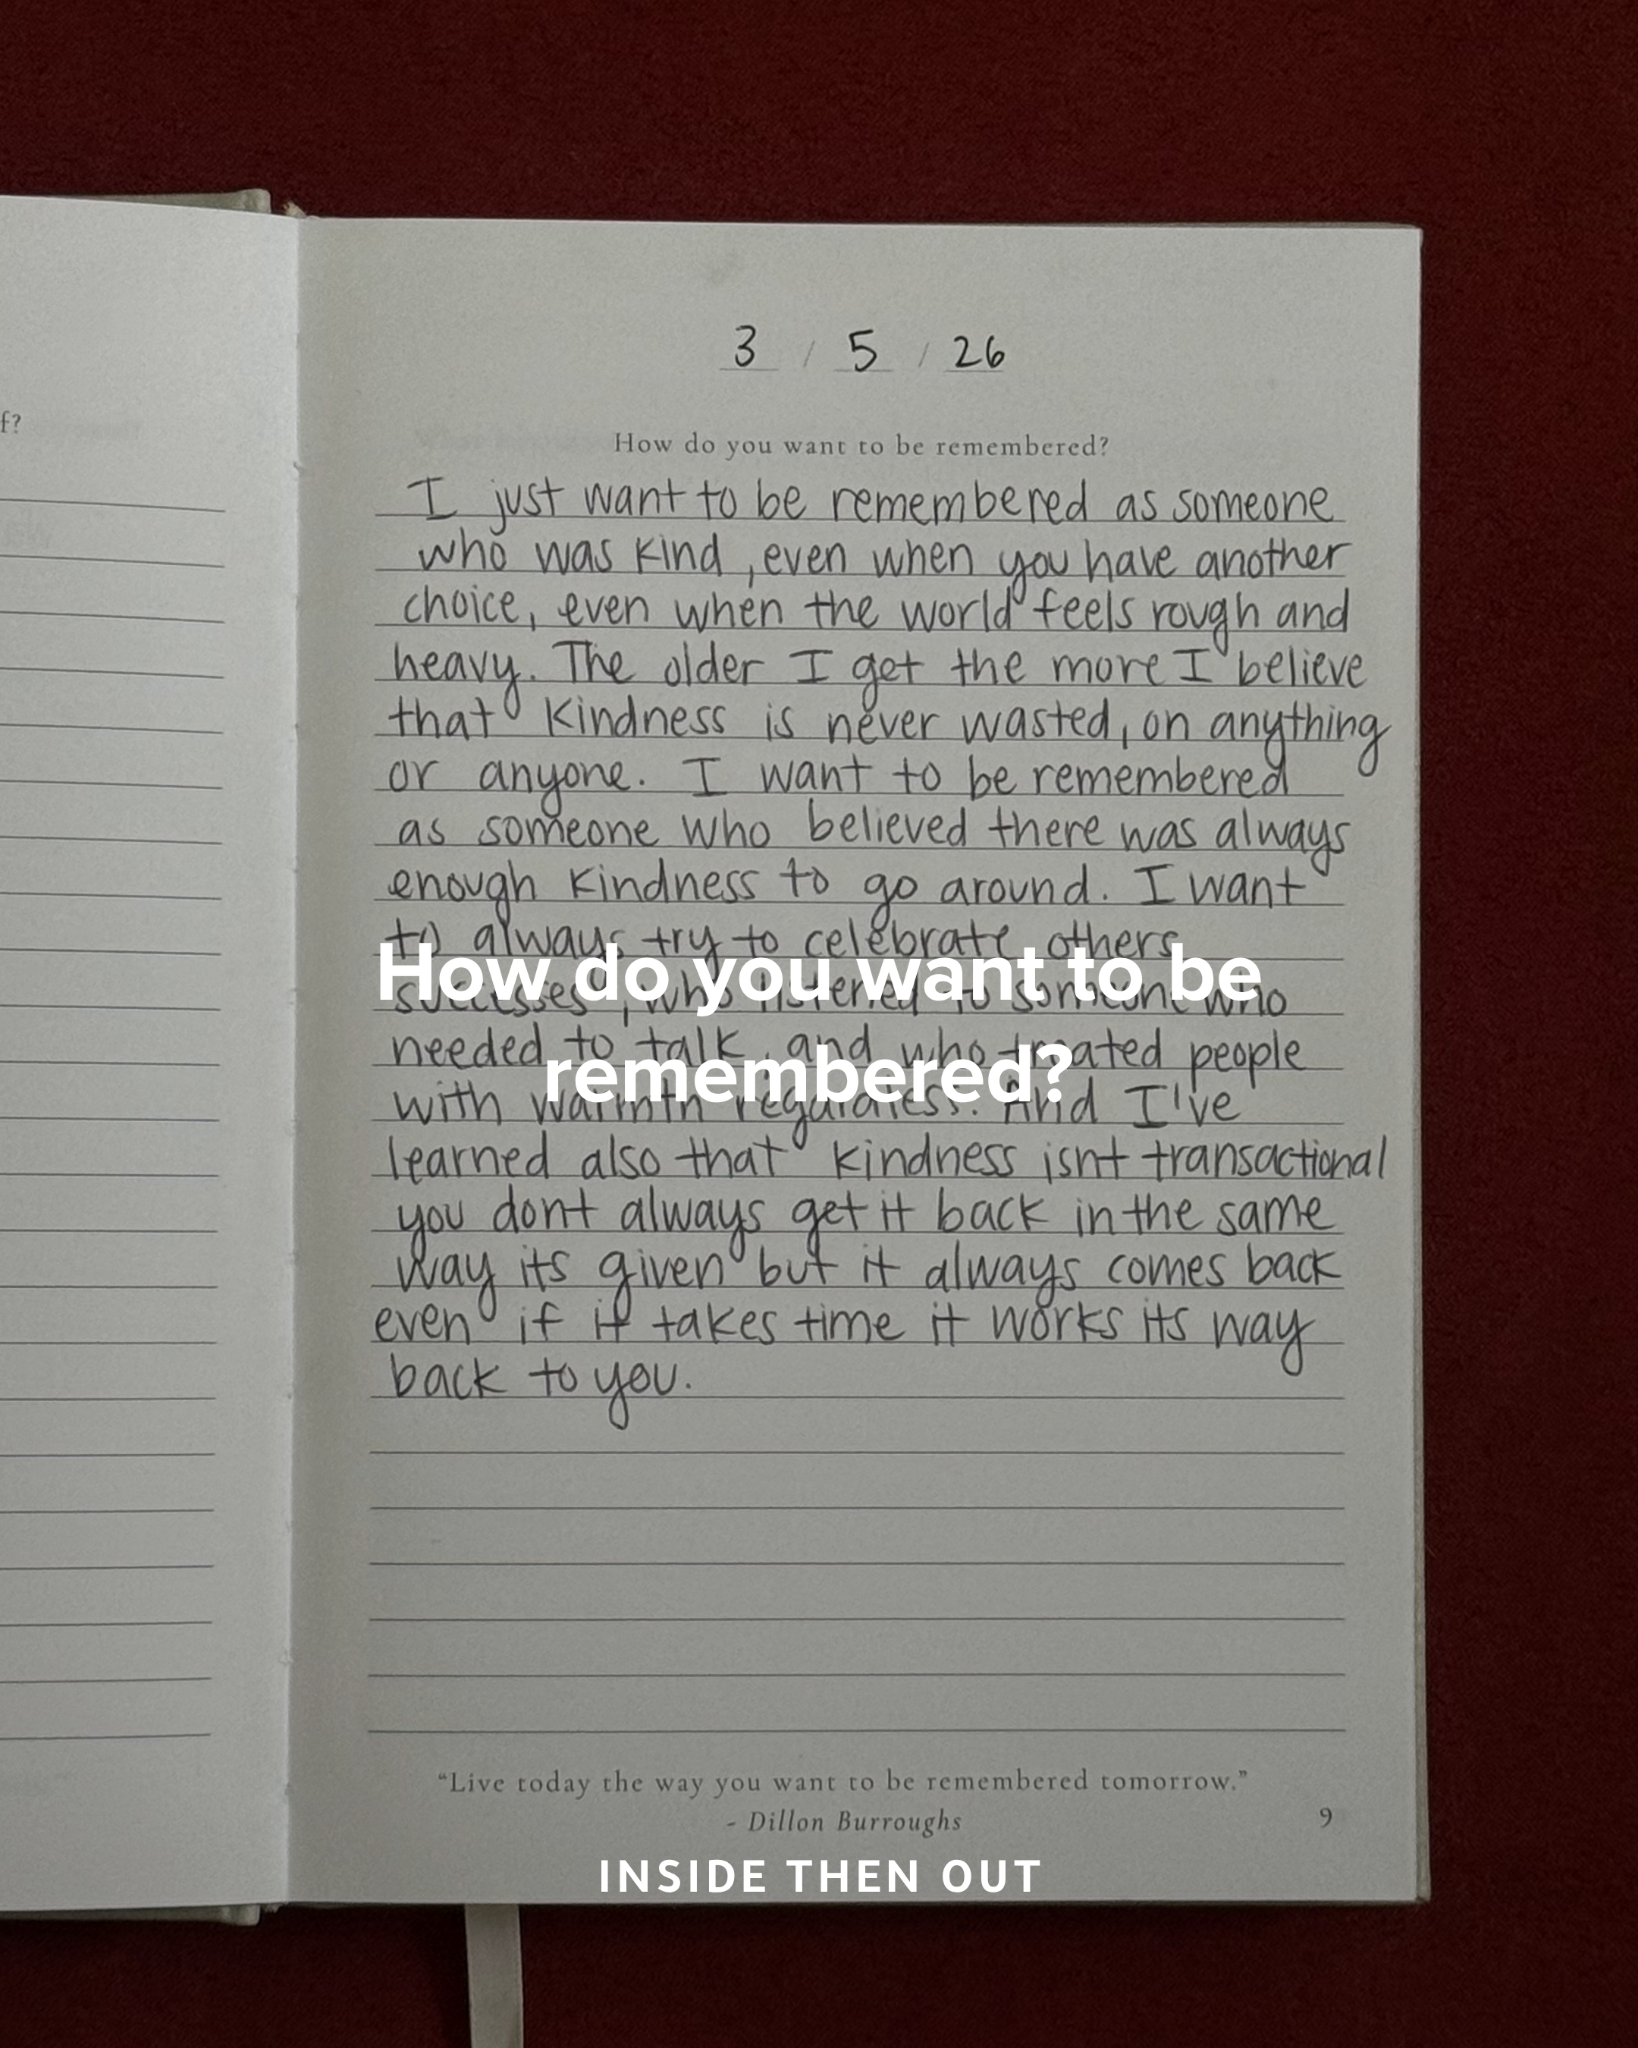 f?
3 / 5 / 26
How do you want to be remembered?
I just want to be remembered as someone
who was kind, even when you have another
choice, even when the world feels rough and
heavy. The older I get the more I believe
that kindness is never wasted, on anything
or anyone. I want to be remembered
as someone who believed there was always
enough kindness to go around. I want
to always try to celebrate others
successes, who listened to someone who
needed to talk, and who treated people
with warmth regardless. And I've
learned also that kindness isnt transactional
you dont always get it back in the same
way its given but it always comes back
even if it takes time it works its way
back to you.
How do you want to be
remembered?
“Live today the way you want to be remembered tomorrow.”
- Dillon Burroughs
9
INSIDE THEN OUT